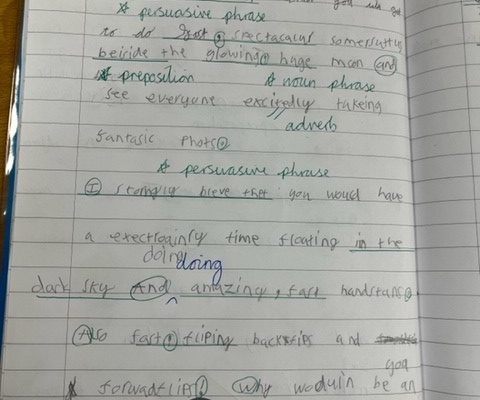 you will get
☆ persuasive phrase
to do fast, spectacular somersults
beicide the glowing, huge moon and
☆ preposition ☆ noun phrase
see everyone excitedly takeing
adverb
fantasic photso
☆ persuasive phrase
I stongly bieve that you would have
a time floating in the
doing doing
dark sky And amazing, fast handstans.
Also fast, fliping backflips and
you
forwadflips! Why be an